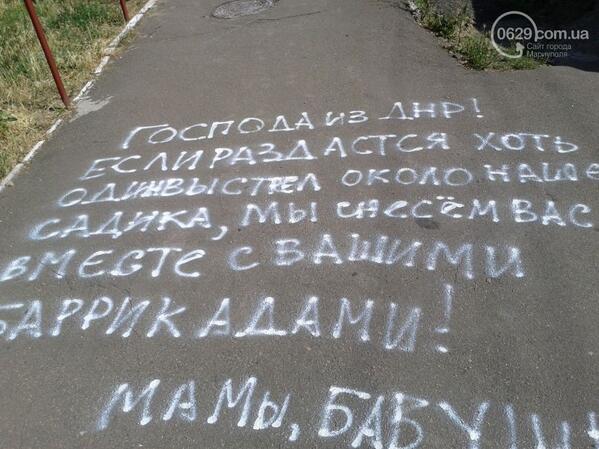 0629.com.ua
Сайт города
Мариуполя
ГОСПОДА ИЗ ДНР!
ЕСЛИ РАЗДАСТСЯ ХОТЬ
ОДИН ВЫСТРЕЛ ОКОЛО НАШЕ
САДИКА, МЫ СНЕСЁМ ВАС
ВМЕСТЕ С ВАШИМИ
БАРРИКАДАМИ!
МАМЫ, БАБУШ